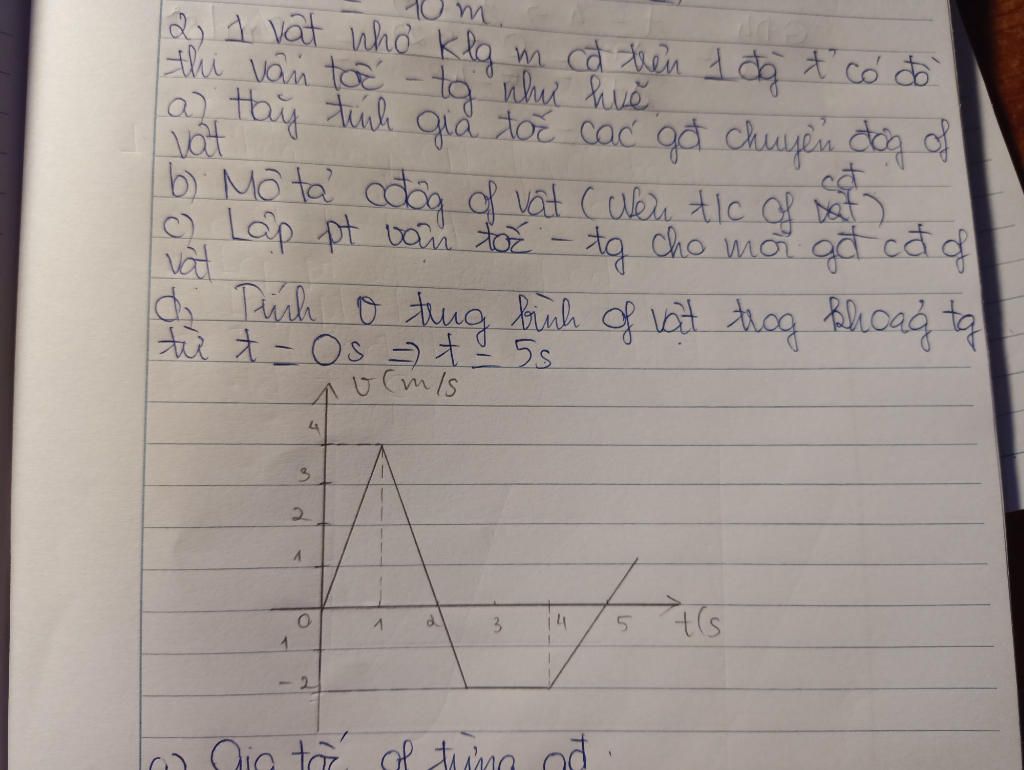 = 10 m.
2, 1 vật nhỏ klg m cđ trên 1 đg t' có đồ
thi vân tốc - tg như hvẽ
a) Hãy tính gia tốc các gđ chuyển độg of
vật
b) Mô tả cđộg of vật (Nêu t/c of cđ vật)
c) Lập pt vân tốc - tg cho mỗi gđ cđ of
vật
d, Tính v trug bình of vật trog khoảg tg
từ t = 0s => t = 5s
v(m/s
4
3
2
1
0 1 2 3 4 5 t(s
1
-2
a) Gia tốc of từng gđ.